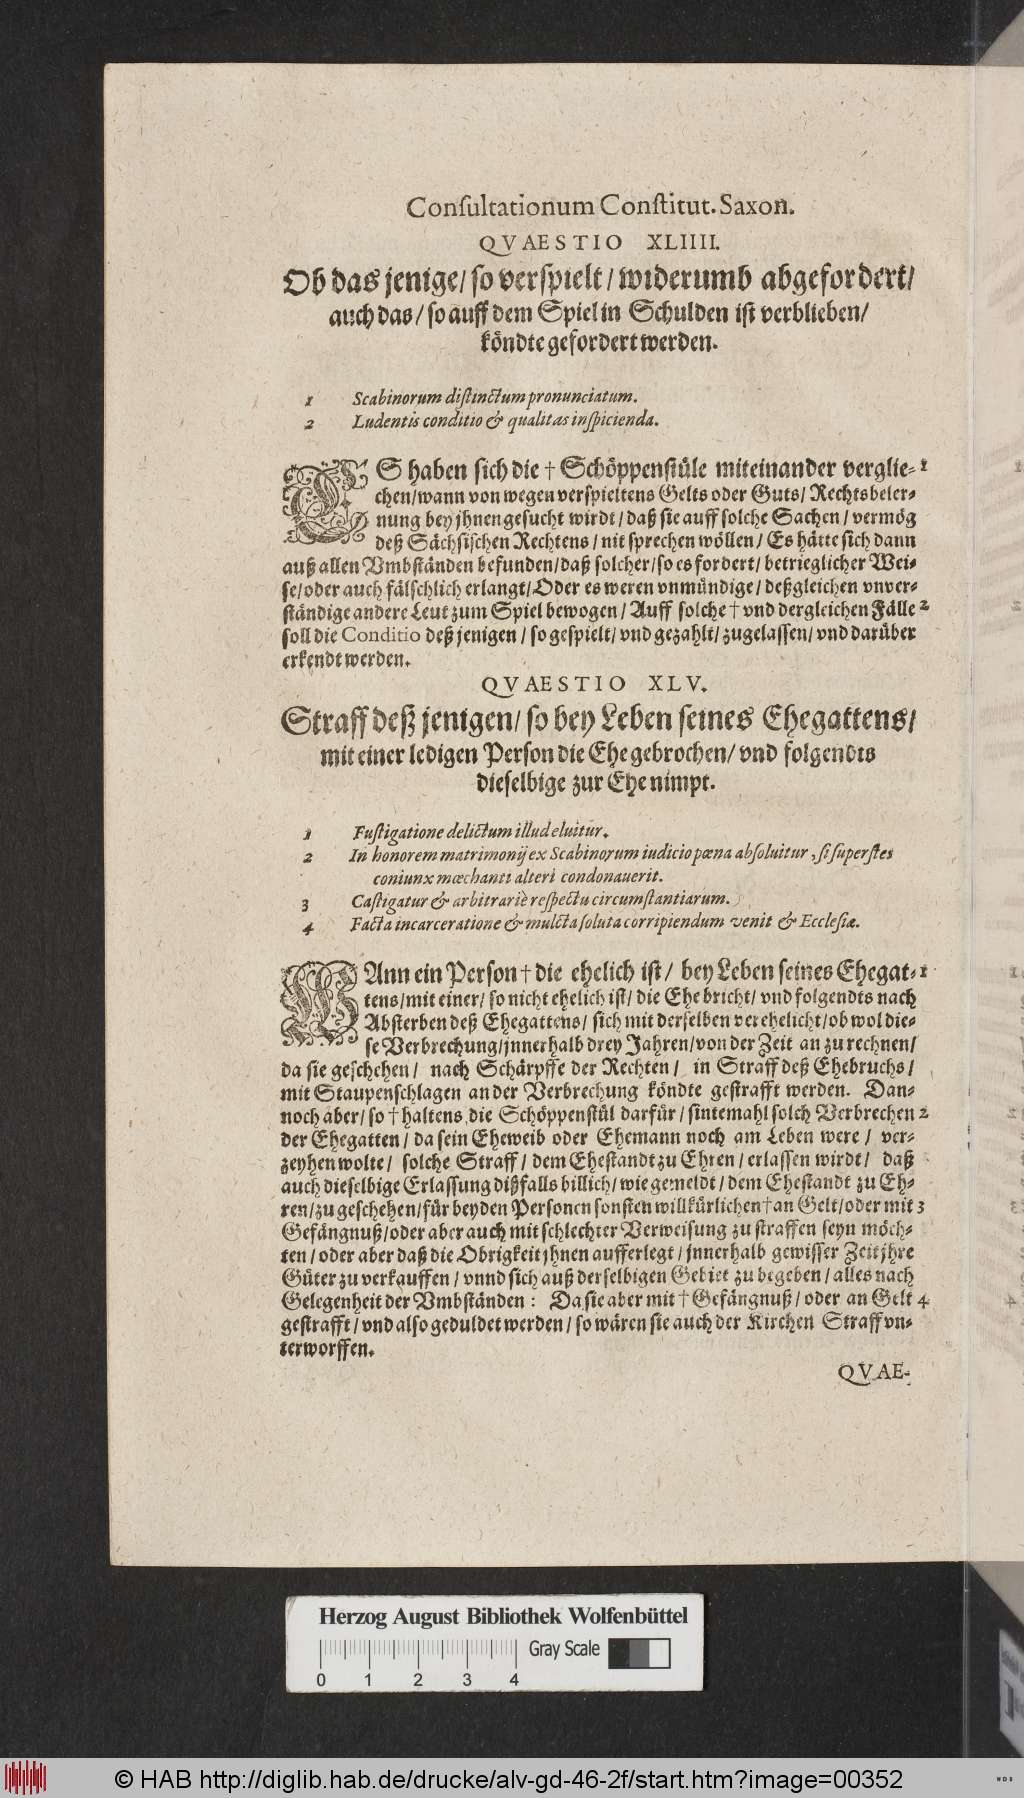 Conſultationum Conſtitut. Saxon.
QVAESTIO XLIIII.
Ob das jenige / ſo verſpielt / widerumb abgefordert /
auch das / ſo auff dem Spiel in Schulden iſt verblieben /
köndte gefordert werden.
1 Scabinorum diſtinctum pronunciatum.
2 Ludentis conditio & qualitas inſpicienda.
ES haben ſich die † Schöppenſtüle miteinander verglie- 1
chen / wann von wegen verſpieltens Gelts oder Guts / Rechtsbeler-
nung bey jhnen geſucht wirdt / daß ſie auff ſolche Sachen / vermög
deß Sächſiſchen Rechtens / nit ſprechen wöllen / Es hätte ſich dann
auß allen Vmbſtänden befunden / daß ſolcher / ſo es fordert / betrieglicher Wei-
ſe / oder auch fälſchlich erlangt / Oder es weren vnmündige / deßgleichen vnver-
ſtändige andere Leut zum Spiel bewogen / Auff ſolche † vnd dergleichen Fälle 2
ſoll die Conditio deß jenigen / ſo geſpielt / vnd gezahlt / zugelaſſen / vnd darüber
erkendt werden.
QVAESTIO XLV.
Straff deß jenigen / ſo bey Leben ſeines Ehegattens /
mit einer ledigen Perſon die Ehe gebrochen / vnd folgendts
dieſelbige zur Ehe nimpt.
1 Fuſtigatione delictum illud eluitur.
2 In honorem matrimonij ex Scabinorum iudicio pœna abſoluitur, ſi ſuperſtes
coniunx mœchanti alteri condonauerit.
3 Caſtigatur & arbitrariè reſpectu circumſtantiarum.
4 Facta incarceratione & mulcta ſoluta corripiendum venit & Eccleſiæ.
WAnn ein Perſon † die ehelich iſt / bey Leben ſeines Ehegat- 1
tens / mit einer / ſo nicht ehelich iſt / die Ehe bricht / vnd folgendts nach
Abſterben deß Ehegattens / ſich mit derſelben verehelicht / ob wol die-
ſe Verbrechung / jnnerhalb drey Jahren / von der Zeit an zu rechnen /
da ſie geſchehen / nach Schärpffe der Rechten / in Straff deß Ehebruchs /
mit Staupenſchlagen an der Verbrechung köndte geſtrafft werden. Dan-
noch aber / ſo † haltens die Schöppenſtül darfür / ſintemahl ſolch Verbrechen 2
der Ehegatten / da ſein Eheweib oder Ehemann noch am Leben were / ver-
zeyhen wolte / ſolche Straff / dem Eheſtandt zu Ehren / erlaſſen wirdt / daß
auch dieſelbige Erlaſſung dißfalls billich / wie gemeldt / dem Eheſtandt zu Eh-
ren / zu geſchehen / für beyden Perſonen ſonſten willkürlichen † an Gelt / oder mit 3
Gefängnuß / oder aber auch mit ſchlechter Verweiſung zu ſtraffen ſeyn möch-
ten / oder aber daß die Obrigkeit jhnen aufferlegt / jnnerhalb gewiſſer Zeit jhre
Güter zu verkauffen / vnnd ſich auß derſelbigen Gebiet zu begeben / alles nach
Gelegenheit der Vmbſtänden : Da ſie aber mit † Gefängnuß / oder an Gelt 4
geſtrafft / vnd alſo geduldet werden / ſo wären ſie auch der Kirchen Straff vn-
terworffen.
QVAE-
Herzog August Bibliothek Wolfenbüttel
Gray Scale
0 1 2 3 4
© HAB http://diglib.hab.de/drucke/alv-gd-46-2f/start.htm?image=00352